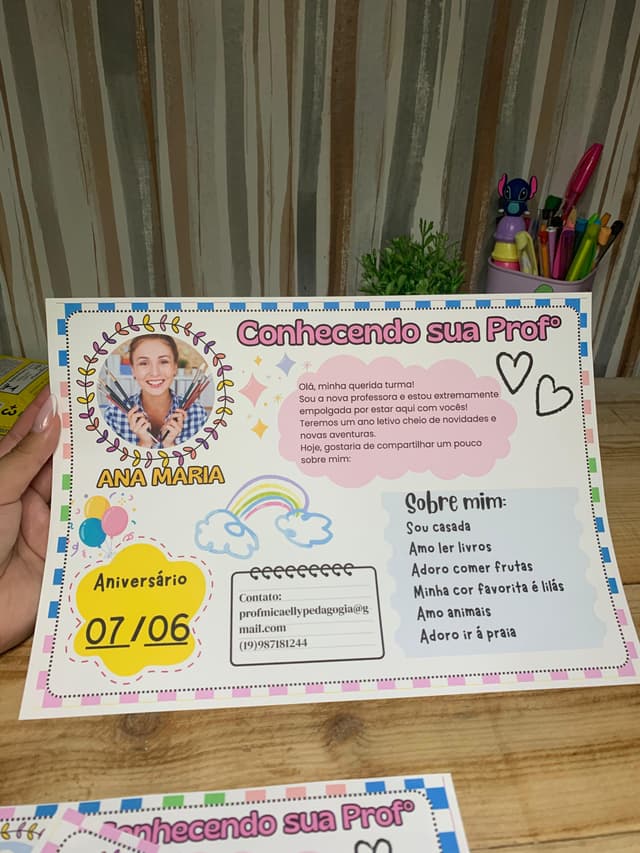 Conhecendo sua Profº
Olá, minha querida turma!
Sou a nova professora e estou extremamente
empolgada por estar aqui com vocês!
Teremos um ano letivo cheio de novidades e
novas aventuras.
Hoje, gostaria de compartilhar um pouco
sobre mim:
ANA MARIA
Sobre mim:
Sou casada
Amo ler livros
Adoro comer frutas
Minha cor favorita é lilás
Amo animais
Adoro ir á praia
Aniversário
07/06
Contato:
profmicaellypedagogia@g
mail.com
(19)987181244
Conhecendo sua Profº